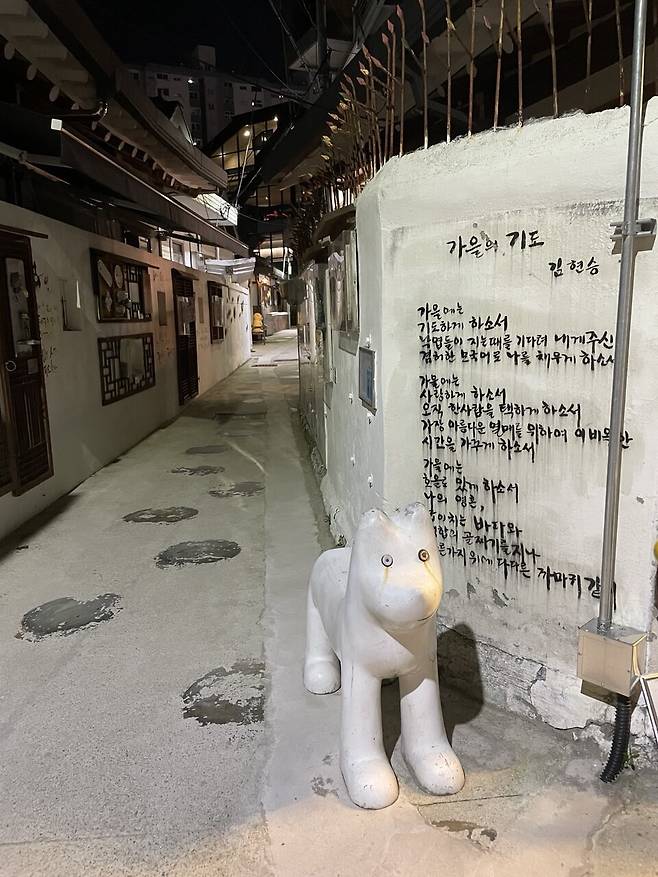 가을의 기도
김현승
가을에는
기도하게 하소서
낙엽들이 지는 때를 기다려 내게 주신
겸허한 모국어로 나를 채우게 하소서
가을에는
사랑하게 하소서
오직 한사람을 택하게 하소서
가장 아름다운 열매를 위하여 이 비옥한
시간을 가꾸게 하소서
가을에는
호올로 있게 하소서
나의 영혼,
치는 바다와
골짜기를 지나
가지 위에 다다른 까마귀 같이